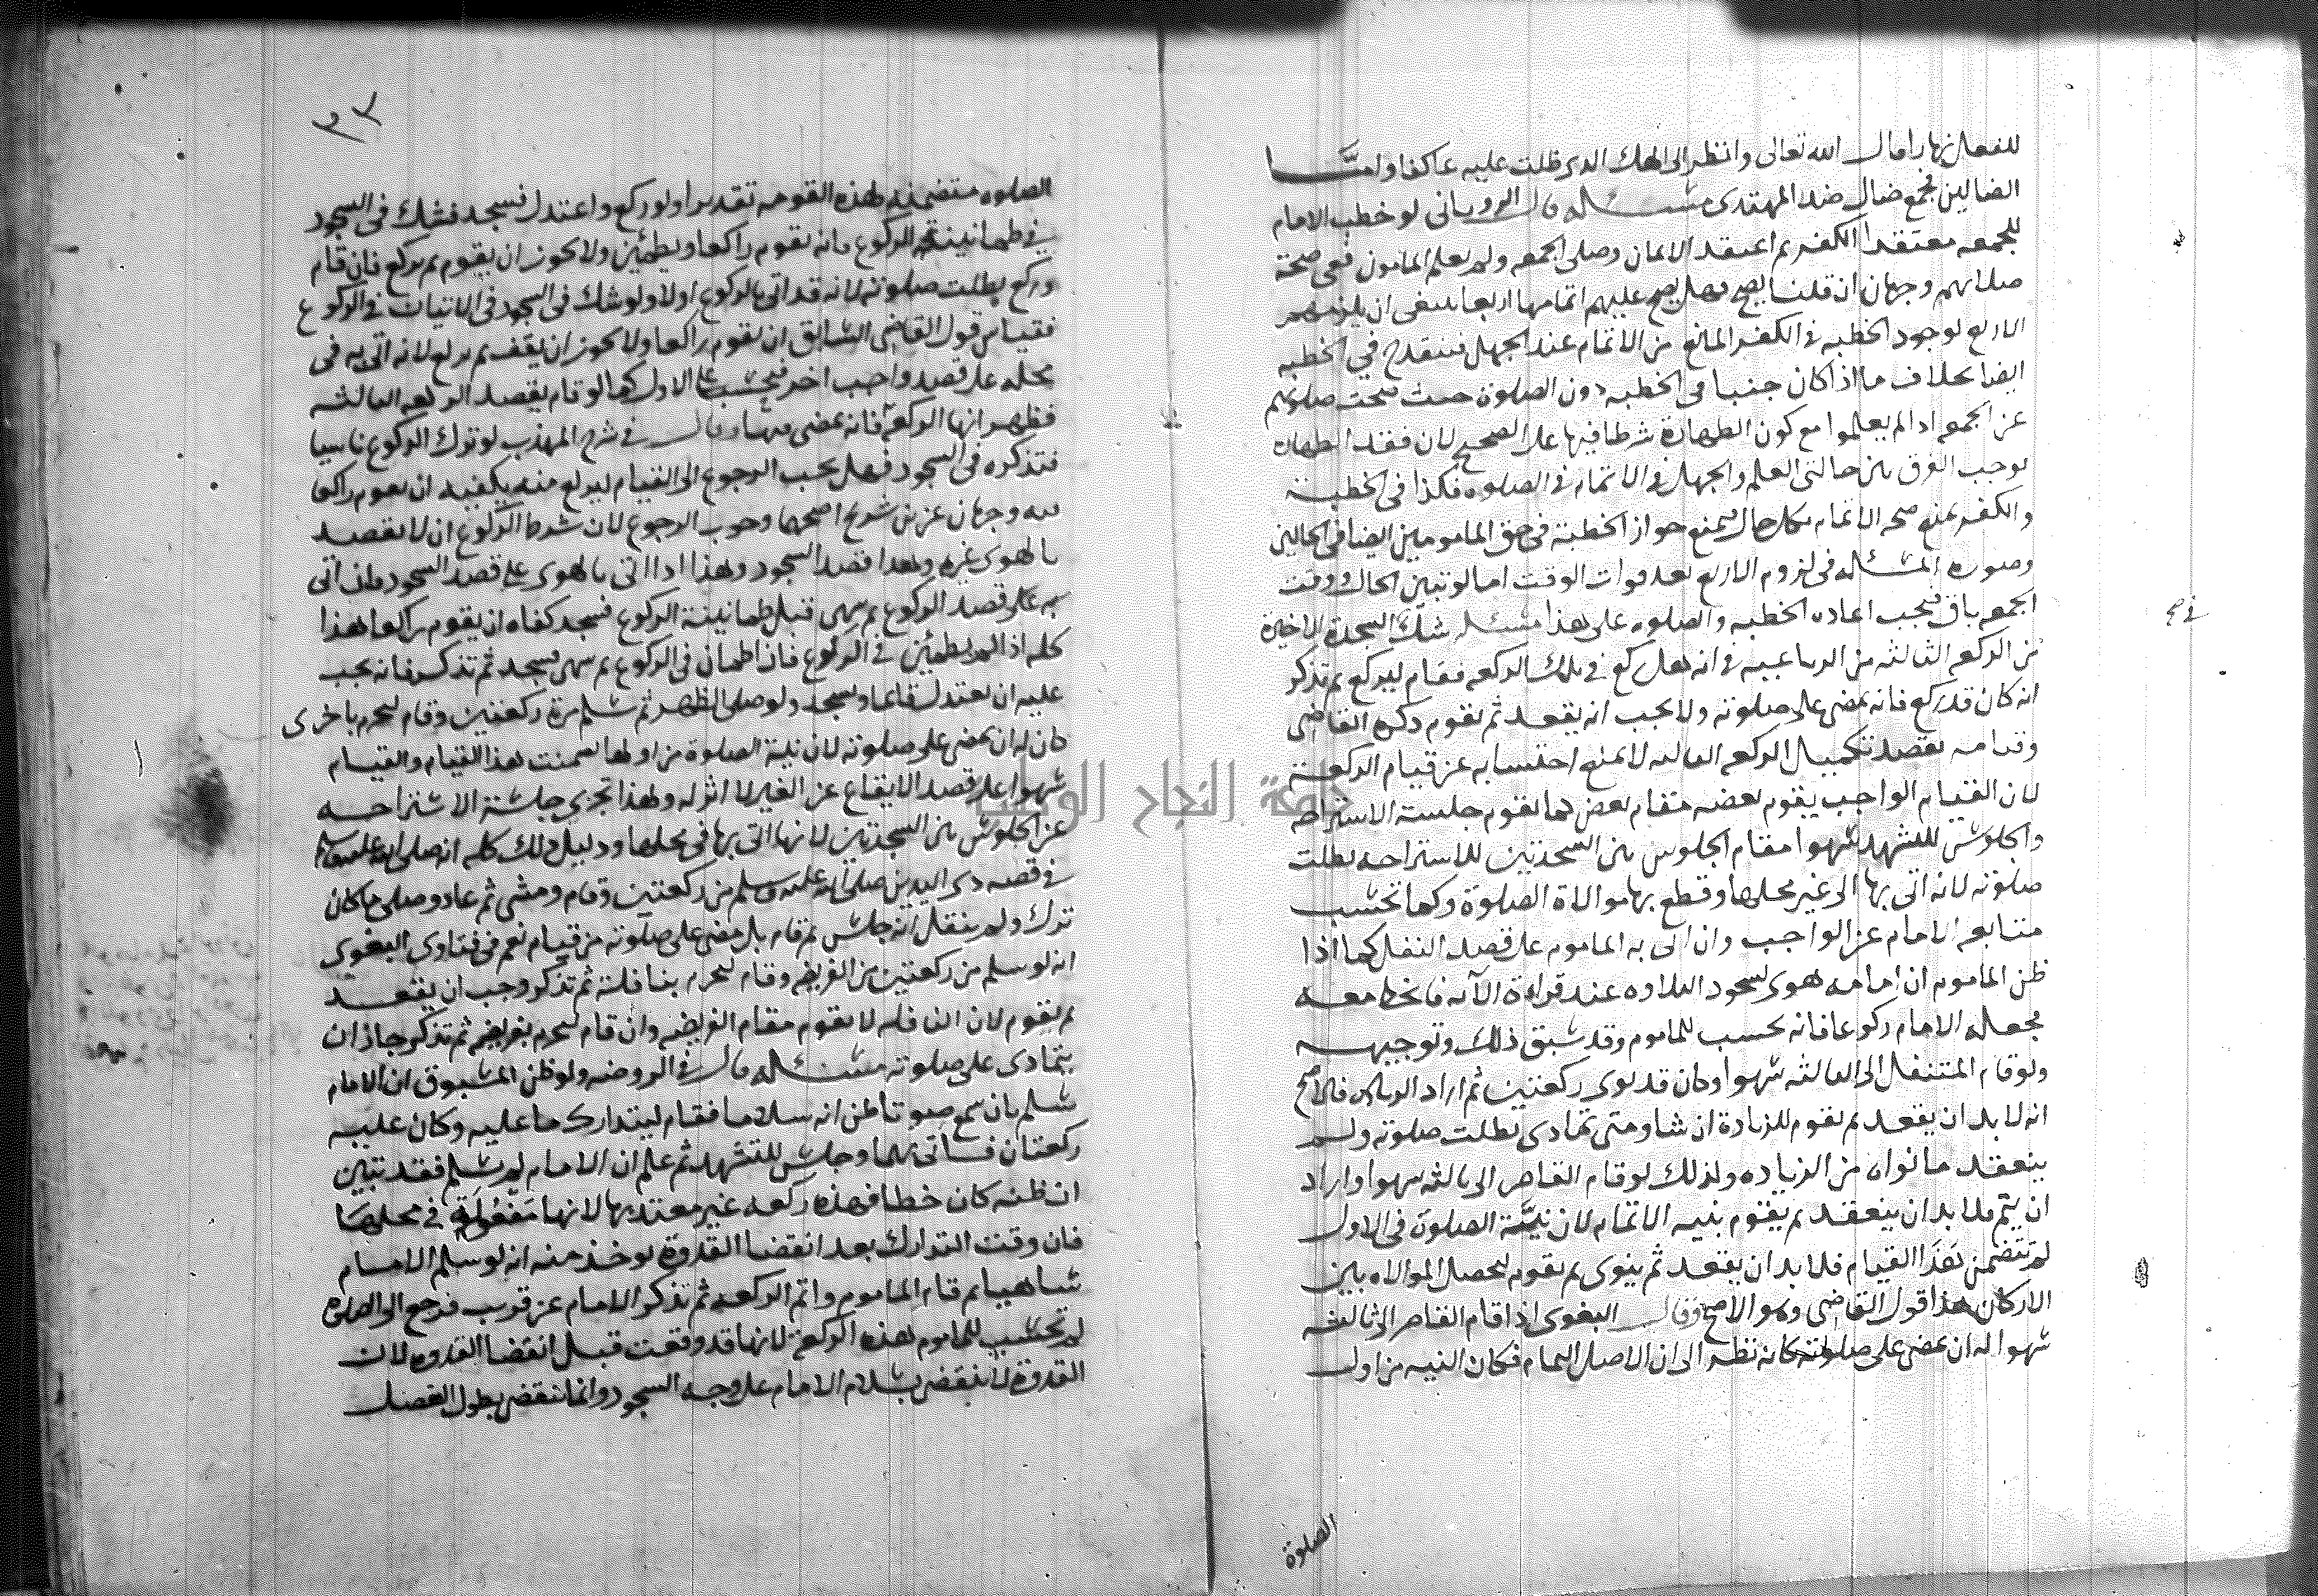 للفعل نهارا قال الله تعالى وانظر الى الهك الذي ظلت عليه عاكفا واما
الضالين فجمع ضال ضد المهتدى مسئله قال الروياني لو خطب الامام
للجمعه معتقدا الكفر ثم اعتقد الايمان وصلى الجمعه ولم يعلم المامون ففي صحة
صلاتهم وجهان ان قلنا يصح فهل يصح عليهم اتمامها اربعا ينبغي ان يلزمهم
الاربع لوجود الخطبه في الكفر المانع من الاتمام عند الجهل فيقدح في الخطبه
ايضا بخلاف ما اذا كان جنبا في الخطبه دون الصلوة حيث صحت صلوتهم
عن الجمعه اذا لم يعلموا مع كون الطهارة شرطا فيها على الصحيح لان فقد الطهاره
يوجب الفرق بين حالتي العلم والجهل في الاتمام في الصلوه فكذا في الخطبة
والكفر يمنع صحه الاتمام بكل حال فيمنع جواز الخطبة في حق المامومين ايضا في الحالين
وصوره المسئله في لزوم الاربع بعد فوات الوقت اما لو تبين الحال ووقت
الجمعه باق فيجب اعاده الخطبه والصلوه على هذا مسئله شك السجدة الاخيرة
في صح
من الركعه الثالثه من الرباعيه في انه هل ركع في تلك الركعه فقام ليركع ثم تذكر
انه كان قد ركع فانه يمضى على صلوته ولا يجب انه يقعد ثم يقوم ذكره القاضي
وقيامه بقصد تكميل الركعه الثالثه لا يمنع احتسابه عن قيام الركعة
لان القيام الواجب يقوم بعضه مقام بعض كما تقوم جلسة الاستراحه
والجلوس للتشهد سهوا مقام الجلوس بين السجدتين للاستراحه بطلت
صلوته لانه اتى بها الى غير محلها وقطع بها موالاة الصلوة وكما تحسب
متابعه الامام عن الواجب وان اتى به الماموم على قصد النفل كما اذا
ظن الماموم ان امامه هوى لسجود التلاوه عند قراءة الآيه فانحط معه
فجعله الامام ركوعا فانه يحسب للماموم وقد سبق ذلك وتوجيهه
ولو قام المتنفل الى الثالثه سهوا وكان قد نوى ركعتين ثم اراد الزياده فالاصح
انه لا بد ان يقعد ثم يقوم للزيادة ان شا ومتى تمادى بطلت صلوته ولم
ينعقد ما نواه من الزياده ولذلك لو قام القاصر الى ثالثه سهوا واراد
ان يتم فلا بد ان يقعد ثم يقوم بنيه الاتمام لان نية الصلوة في الاول
لم تتضمن هذا القيام فلا بد ان يقعد ثم ينوى ثم يقوم لتحصل الموالاه بين
الاركان هذا قول القاضي وهو الاصح وقال البغوى اذا قام القاصر الى ثالثه
سهوا له ان يمضى على صلوته كانه نظر الى ان الاصل التمام فكان النيه من اول
الصلوة
٣٣
الصلوه متضمنه لهذه القومه تقديرا ولو ركع واعتدل فسجد فشك في السجود
في طمانينة الركوع فانه يقوم راكعا ويطمئن ولا يجوز ان يقوم ثم يركع فان قام
وركع بطلت صلوته لانه قد اتى بالركوع اولا ولو شك في السجود في الاتيان في الركوع
فقياس قول القاضي السابق ان يقوم راكعا ولا يجوز ان يقف ثم يركع لانه اتى به في
محله على قصد واجب اخر فيحسب على الاول كما لو قام بقصد الركعه الثالثه
فظهر انها الركعه فانه يمضى فيها وقال في شرح المهذب لو ترك الركوع ناسيا
فتذكره في السجود فهل يجب الرجوع الى القيام ليركع منه يكفيه ان يقوم راكعا
فيه وجهان عن بن شريح اصحهما وجوب الرجوع لان شرط الركوع ان لا يقصد
بالهوى غيره وهذا قصد السجود وهذا اذا اتى بالهوى على قصد السجود فان اتى
به على قصد الركوع ثم سهى قبل طمانينة الركوع فسجد كفاه ان يقوم راكعا هذا
كله اذا لم يطمئن في الركوع فان اطمان في الركوع ثم سهى فسجد ثم تذكر فانه يجب
عليه ان يعتدل قائما ويسجد ولو صلى الظهر ثم سلم من ركعتين وقام لتحرم باخرى
كان له ان يمضى على صلوته لان نية الصلوة من اولها تضمنت هذا القيام والقيام
سهوا على قصد الايقاع عن الغير لا اثر له ولهذا تجزي جلسة الاستراحه
عن الجلوس بين السجدتين لانها اتى بها في محلها ودليل ذلك كله انه صلى الله عليه وسلم
في قصه ذي اليدين صلى الله عليه وسلم من ركعتين وقام ومشى ثم عاد وصلى ما كان
ترك ولم ينقل انه جلس ثم قام بل مضى على صلوته من قيام نعم في فتاوى البغوى
انه لو سلم من ركعتين من الفريضه وقام لتحرم بنافلة ثم تذكر وجب ان يقعد
ثم يقوم لان النافله لا تقوم مقام الفريضه وان قام لتحرم بفريضه ثم تذكر جاز ان
يتمادى على صلوته مسئله قال في الروضه ولو ظن المسبوق ان الامام
سلم بان سمع صوتا ظن انه سلاما فقام ليتدارك ما عليه وكان عليه
ركعتان فاتى بهما وجلس للتشهد ثم علم ان الامام لم يسلم فقد تبين
ان ظنه كان خطا فهذه ركعه غير معتد بها لانها مفعولة في محلها
فان وقت التدارك بعد انقضا القدوة يوخذ منه انه لو سلم الامام
ساهيا ثم قام الماموم واتم الركعه ثم تذكر الامام عن قريب فرجع الى الصلوه
لم تحسب للماموم هذه الركعة لانها قد وقعت قبل انقضا القدوه لان
القدوة لا تنقض بسلام الامام على وجه السجود وانما تنقضي بطول الفصل